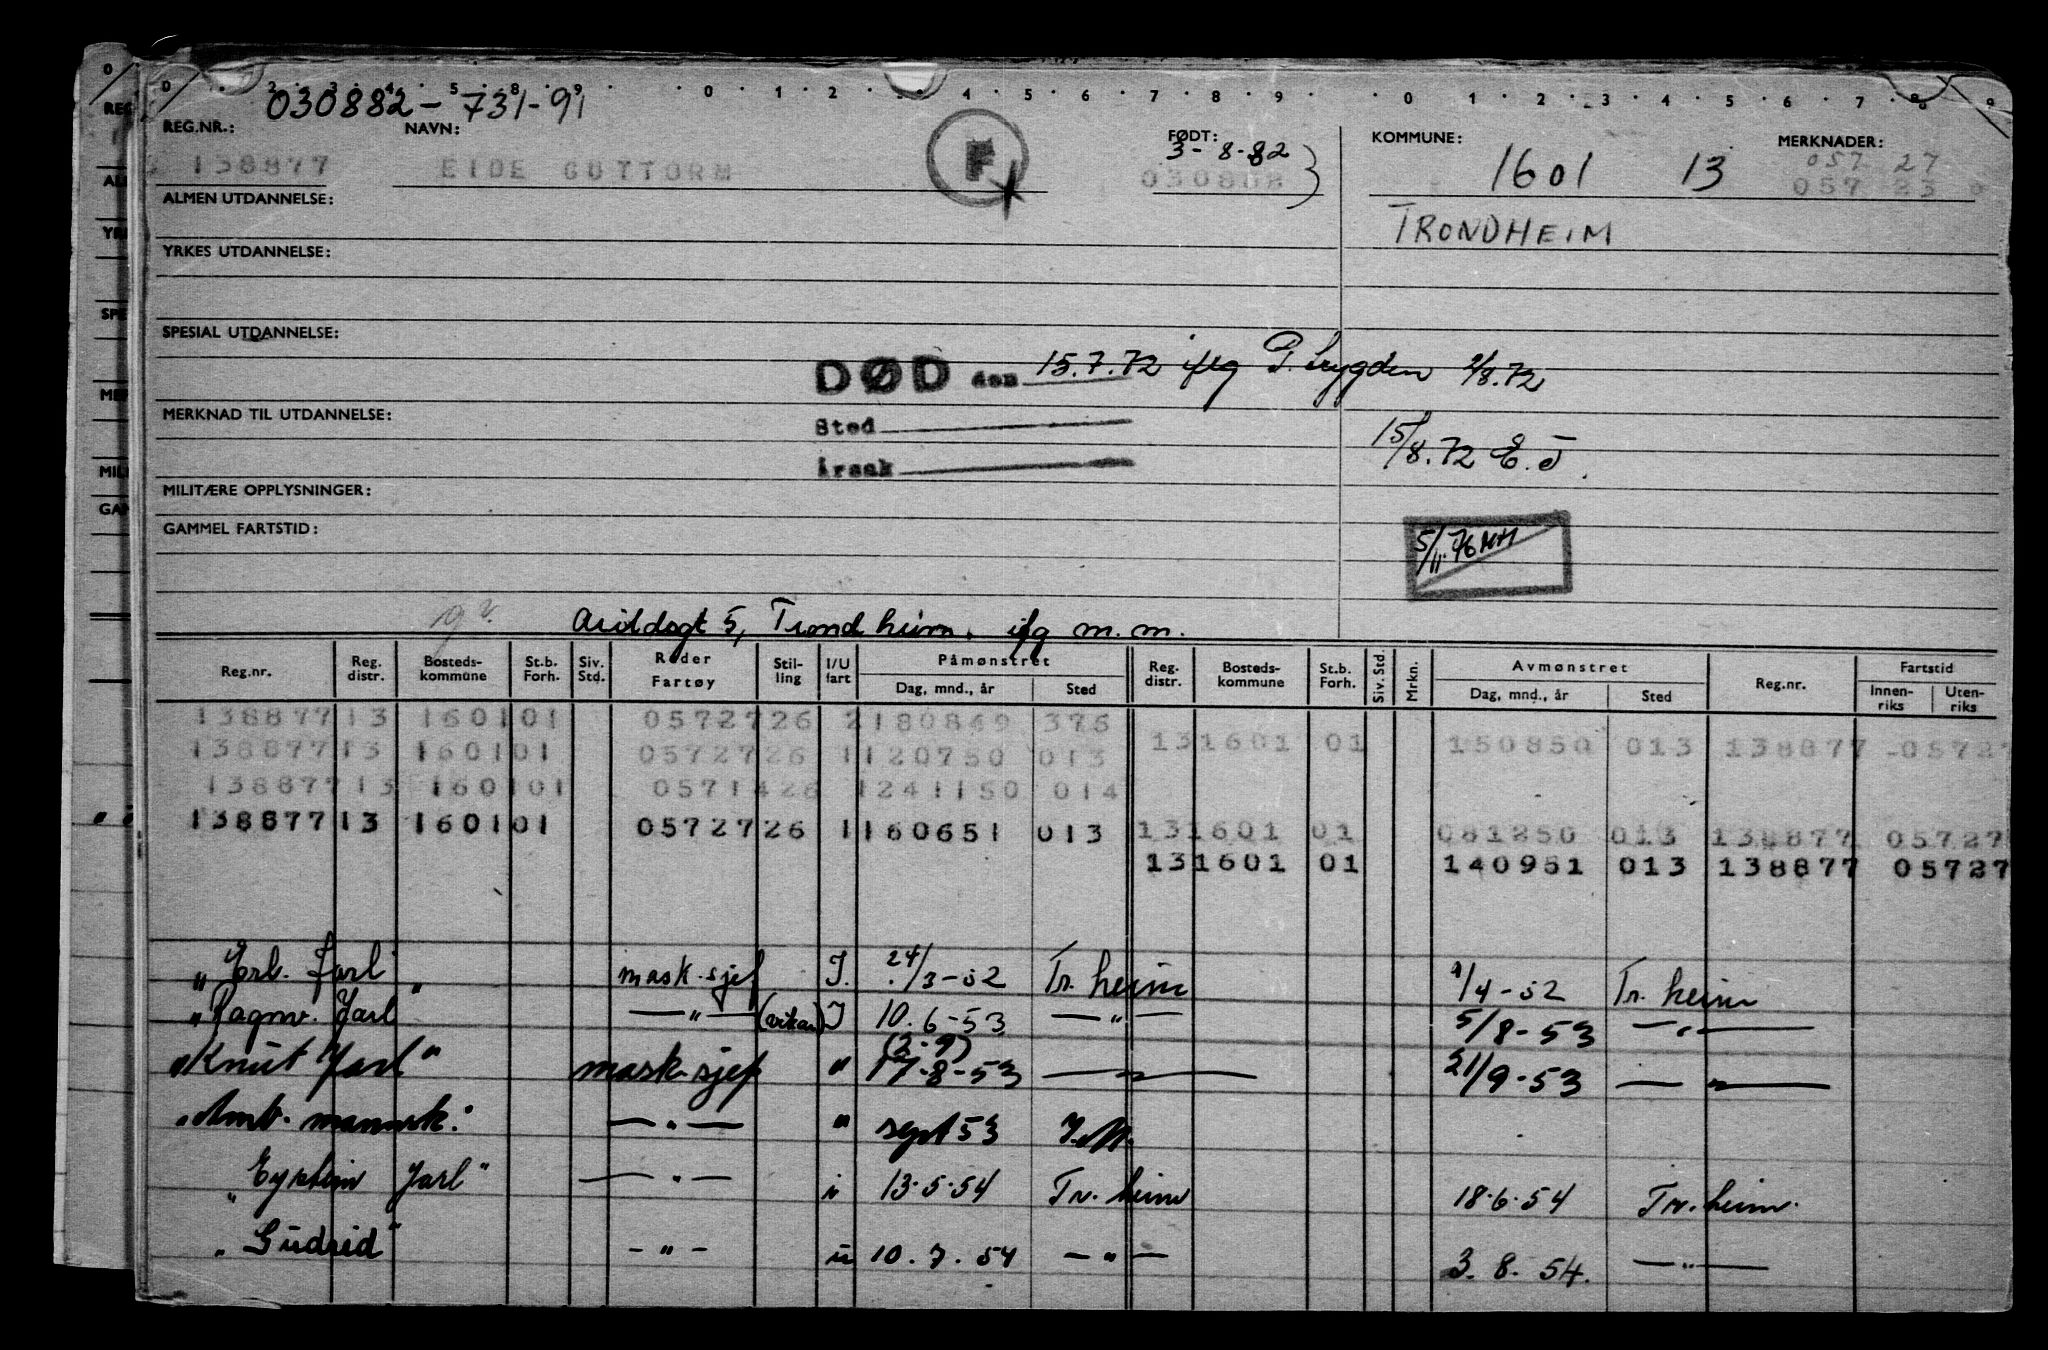 030882-731-91
REG.NR.: NAVN: FØDT: KOMMUNE: MERKNADER:
138877 EIDE GUTTORM F 3-8-82 1601 13 057 27
030808 057 23
ALMEN UTDANNELSE: TRONDHEIM
YRKES UTDANNELSE:
SPESIAL UTDANNELSE:
DØD den 15.7.72 iflg P. trygden 2/8.72
MERKNAD TIL UTDANNELSE:
Sted 15/8.72 E.J.
Årsak
MILITÆRE OPPLYSNINGER:
GAMMEL FARTSTID:
5/11.76 MH
5, Trondheim. ifg m.m.
Reg.nr. Reg. distr. Bosteds-kommune St.b. Forh. Siv. Std. Reder Fartøy Stil-ling I/U fart Påmønstret Dag, mnd., år Sted Reg. distr. Bosteds-kommune St.b. Forh. Siv. Std. Mrkn. Avmønstret Dag, mnd., år Sted Reg.nr. Fartstid Innen-riks Uten-riks
138877 13 1601 01 05727 26 2 180849 376
138877 13 1601 01 05727 26 1 120750 013 13 1601 01 150850 013 138877 -05727
138877 13 1601 01 05714 26 1 241150 014
138877 13 1601 01 05727 26 1 160651 013 13 1601 01 081250 013 138877 05727
13 1601 01 140951 013 138877 05727
"Erl. Jarl" mask.sjef I. 24/3-52 Tr.heim 1/4-52 Tr.heim
"Ragnv. Jarl" —"— (vikar) I 10.6-53 —"— 5/8-53 —"—
(2-9)
"Knut Jarl" mask.sjef " 17-8-53 —"— 21/9-53 —"—
—"— " sept 53
"Eystein Jarl" —"— " 13.5.54 Tr.heim 18.6.54 Tr.heim.
"Gudrid" -"- u 10.7.54 —"— 3.8.54. —"—